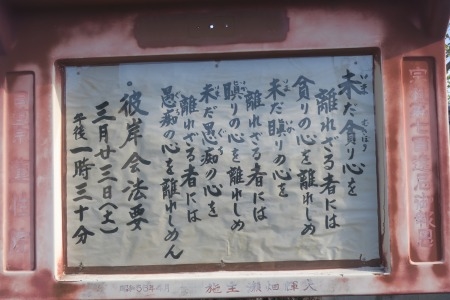 未だ貪り心を
離れざる者には
貪りの心を離れしめ
未だ瞋りの心を
離れざる者には
瞋りの心を離れしめ
未だ愚痴の心を
離れざる者には
愚痴の心を離れしめん
彼岸会法要
三月廿三日(土)
午後一時三十分
施主瀬畑輝夫